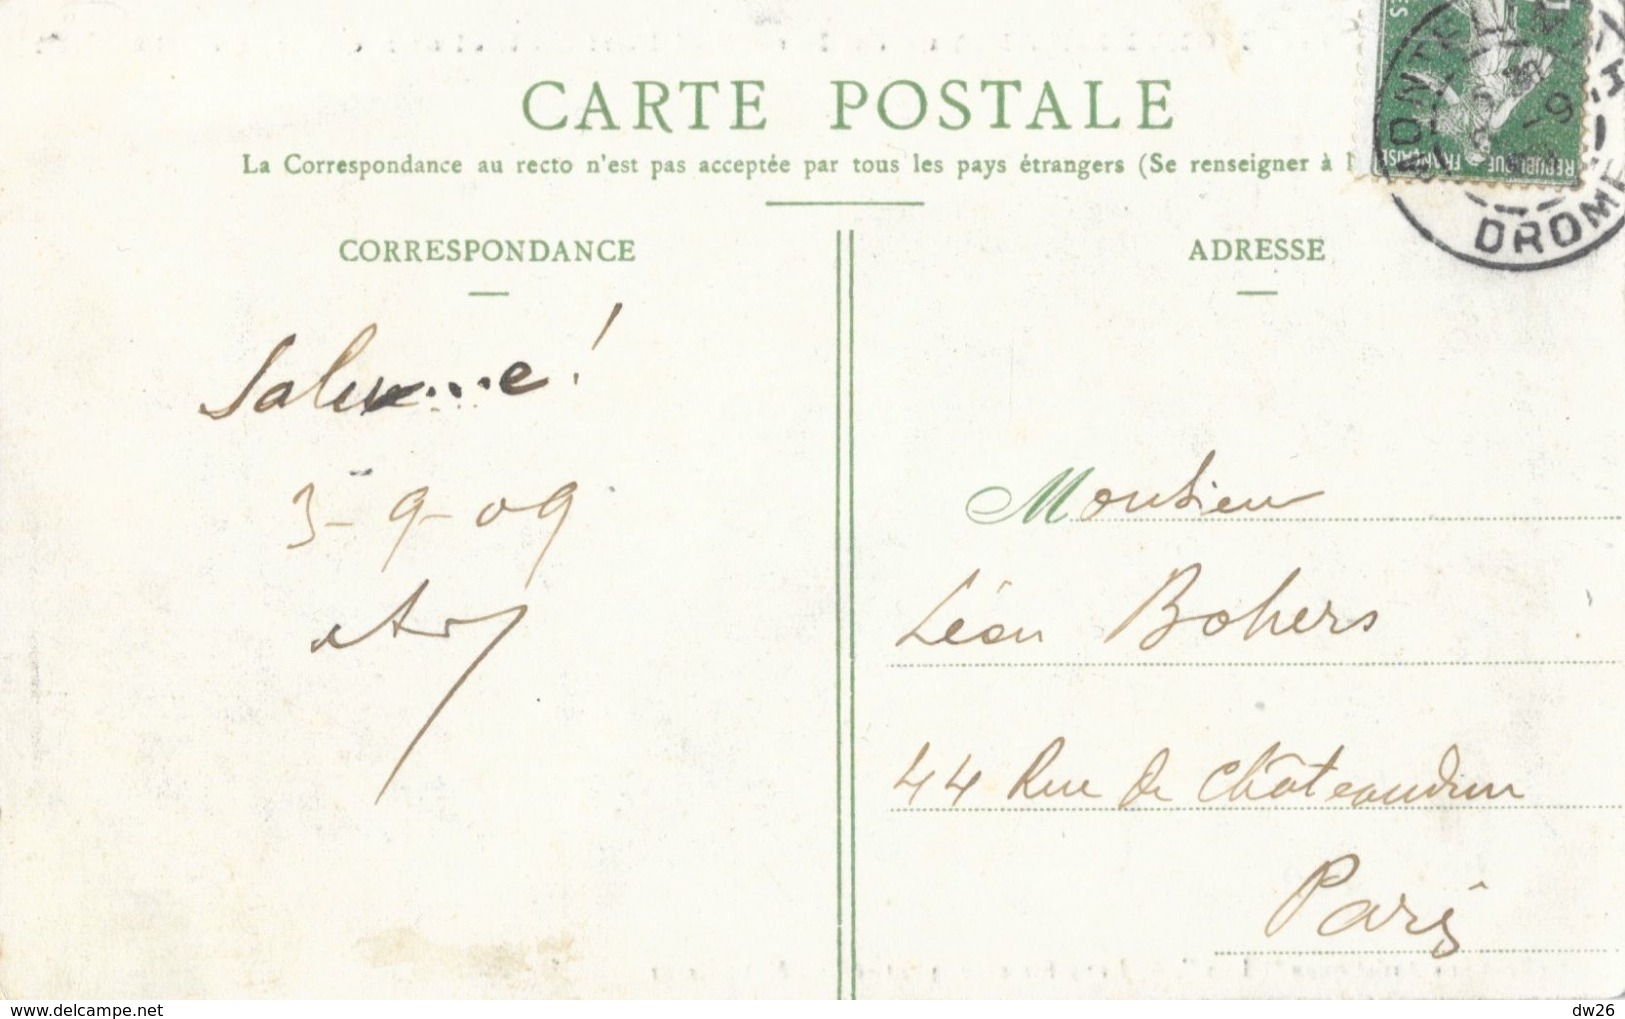 CARTE POSTALE
La Correspondance au recto n'est pas acceptée par tous les pays étrangers (Se renseigner à
CORRESPONDANCE
3-9-09
ADRESSE
Monsieur
Léon Bohers
44 Rue de Châteaudun
Paris
REPUBLIQUE FRANÇAISE
DROME
delcampe.net
dw26